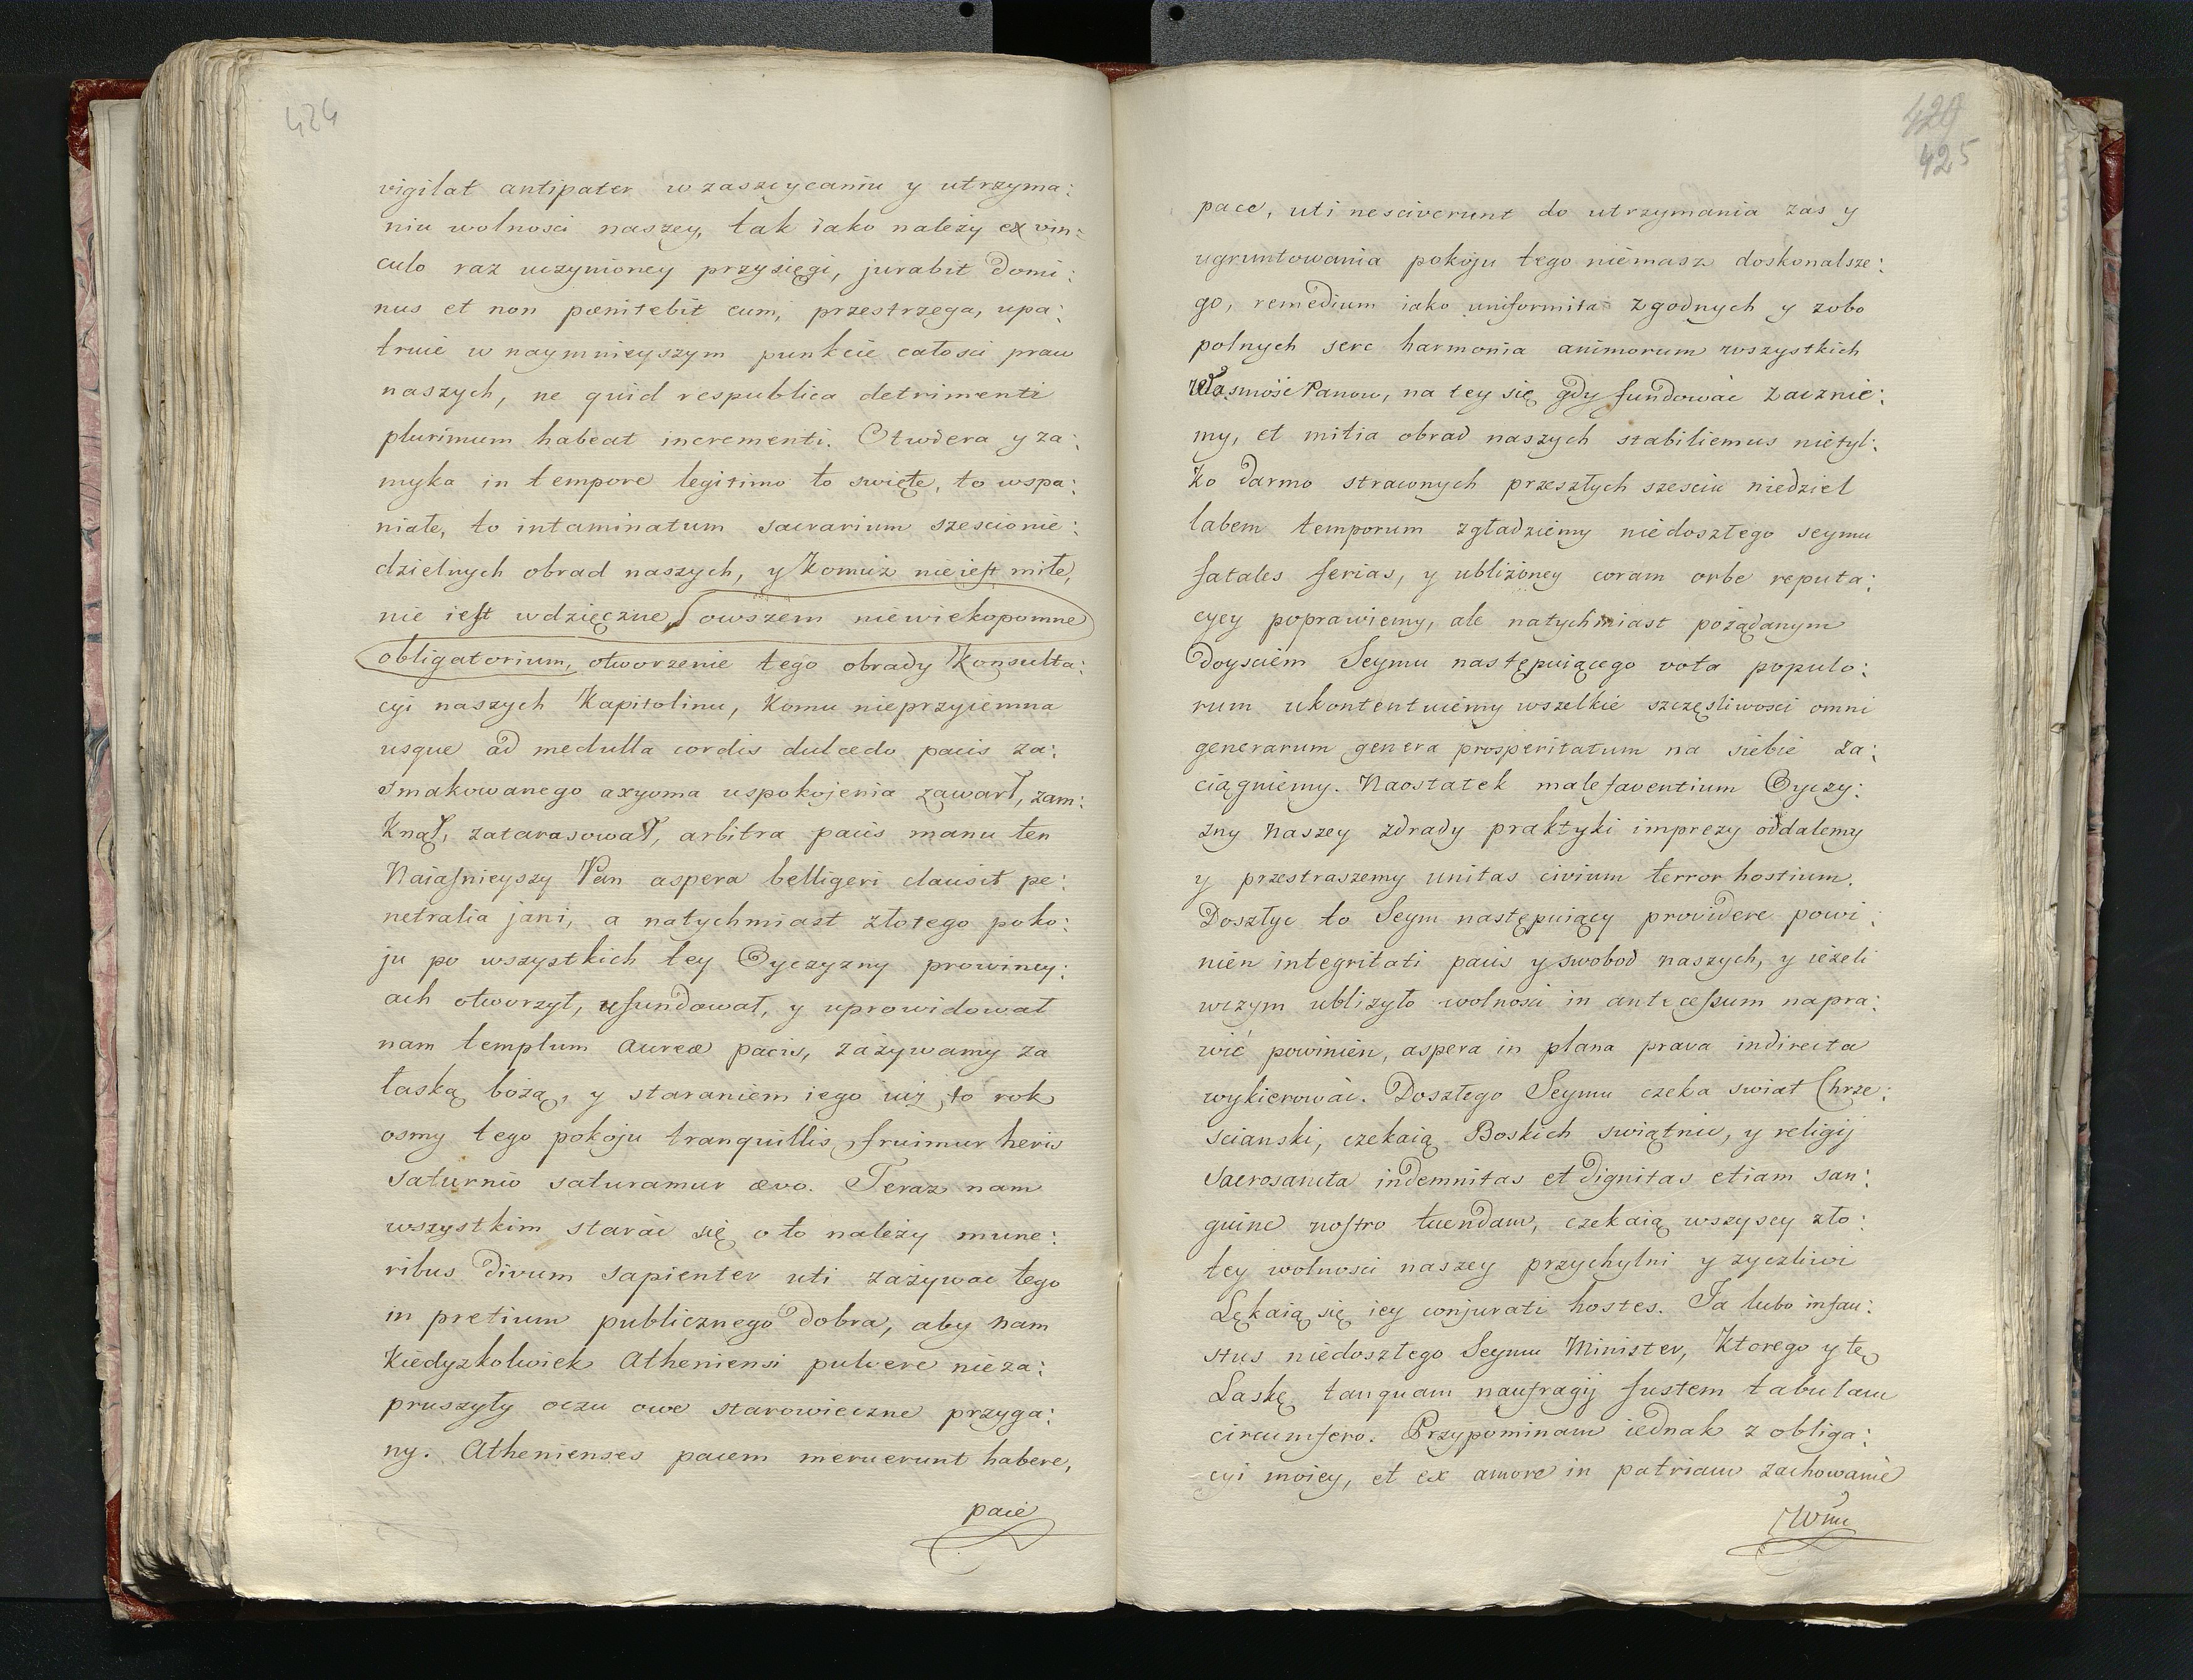 424
vigilat antipater w zaszcycaniu y utrzyma:
niu wolnosci naszey, tak iako należy ex vin:
culo raz uczynioney przysięgi, jurabit Domi:
nus et non pœnitebit eum, przestrzega, upa:
truie w naymnieyszym punkcie całosci praw
naszych, ne quid respublica detrimenti
plurimum habeat incrementi. Otwiera y za:
myka in tempore legitimo to swięte, to wspa:
niałe, to intaminatum sacrarium szescionie:
dzielnych obrad naszych, y Komuż nie iest miłe,
nie iest wdzięczne, owszem niewiekopomne
obligatorium, otworzenie tego obrady Konsulta:
cyi naszych Kapitolinu, Komu nieprzyiemna
usque ad medulla cordis dulcedo pacis za:
smakowanego axyoma uspokojenia zawarł, zam:
Knął, zatarasował, arbitra pacis manu ten
Naiasnieyszy Pan aspera belligeri clausit pe:
netralia jani, a natychmiast złotego poko:
ju po wszystkich tey Oyczyzny prowincy:
ach otworzył, ufundował, y uprowidował
nam templum aureæ pacis, zażywamy za
łaską bożą, y staraniem iego iuż to rok
osmy tego pokoju tranquillis fruimur heris
Saturnio saturamur ævo. Teraz nam
wszystkim starać się o to należy mune:
ribus Divum sapienter uti zażywac tego
in pretium publicznego Dobra, aby nam
Kiedyzkolwiek Atheniensi pulvere nieza:
pruszyły oczu owe starowieczne przyga:
ny. Athenienses pacem meruerunt habere,
pacie
429
425
pace, uti nesciverunt do utrzymania zas y
ugruntowania pokoju tego niemasz doskonalsze:
go, remedium iako uniformitas zgodnych y zobo
polnych serc harmonia animorum wszystkich
Panow, na tey się gdy fundować zacznie:
my, et mitia obrad naszych stabiliemus nietyl:
ko darmo strawnych przeszłych szesciu niedziel
labem temporum zgładziemy niedoszłego seymu
fatales ferias, y ubliżoney coram orbe reputa:
cyey poprawiemy, ale natychmiast pożądanym
Doysciem Seymu następuiącego vota populo:
rum ukontentuiemy wszelkie szczęsliwosci omni
generarum genera prosperitatum na siebie za:
ciągniemy. Naostatek malefaventium Oyczy:
zny Naszey zdrady praktyki imprezy oddalemy
y przestraszemy unitas civium terror hostium.
Doszłyc to Seym następuiący providere powi:
nien integritati pacis y swobod naszych, y ieżeli
wczym ubliżyło wolnosci in antecessum napra:
wić powinien, aspera in plana prava indirecta
wykierować. Doszłego Seymu czeka swiat Chrze:
scianski, czekaią Boskich swiątnic, y religij
Sacrosancta indemnitas et Dignitas etiam san:
guine nostro tuendam, czekaią wszyscy zło:
tey wolnosci naszey przychylni y zyczliwi
Lękaią się iey conjurati hostes. Ja lubo infau:
stus niedoszłego Seymu Minister, Ktorego y tę
Laskę tanquam naufragij fustem tabulam
circumfero. Przypominam iednak z obliga:
cyi moiey, et ex amore in patriam zachowanie